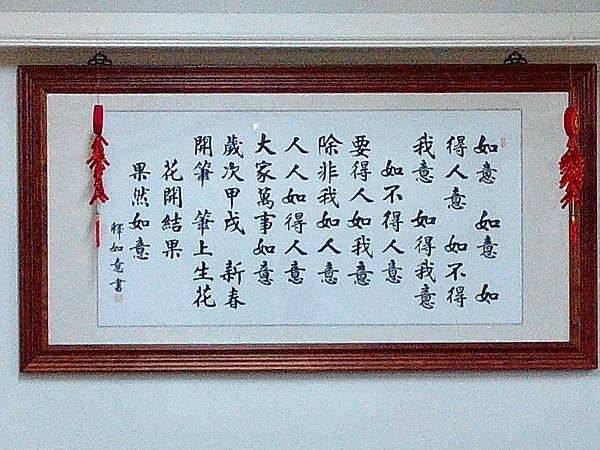 如意 如意 如
得人意 如不得
我意 如得我意
如不得人意
要得人如我意
除非我如人意
人人如得人意
大家萬事如意
歲次甲戌 新春
開筆 筆上生花
花開結果
果然如意
釋如意書